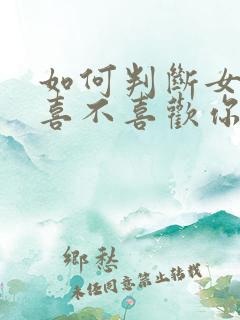 如何判斷女
喜不喜歡你
鄉愁
未经同意禁止转载